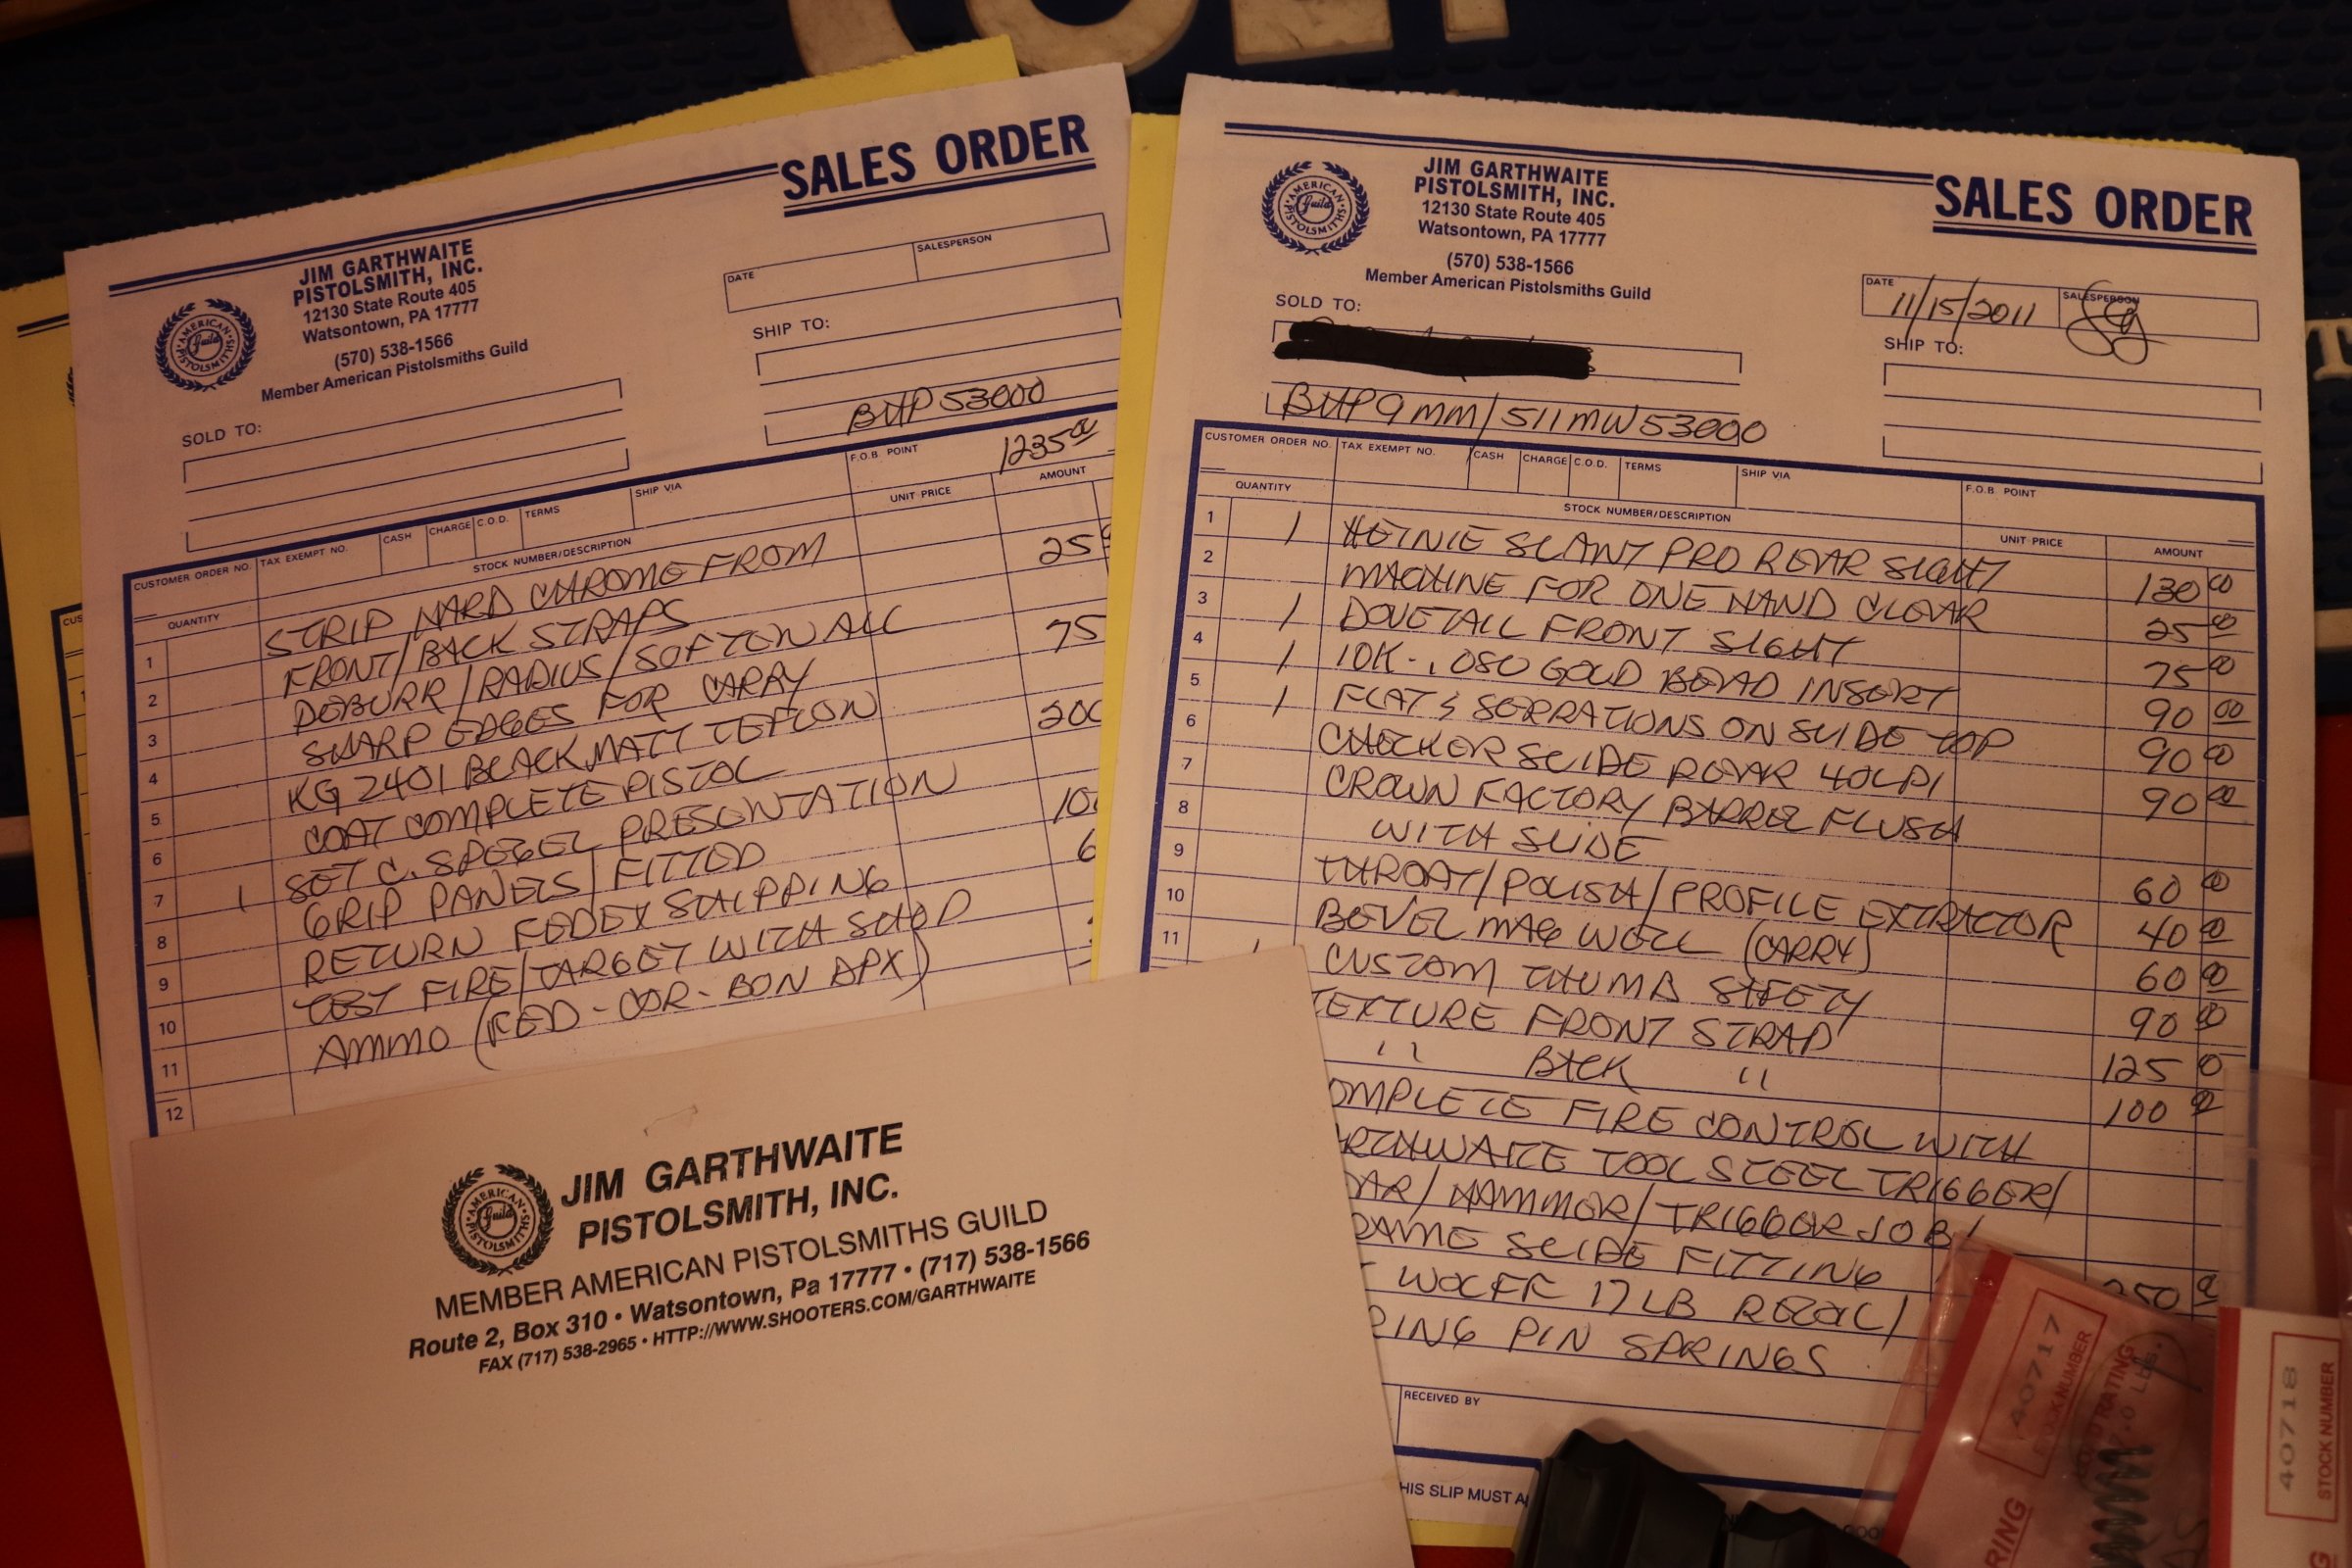 COLT
SALES ORDER
JIM GARTHWAITE
PISTOLSMITH, INC.
12130 State Route 405
Watsontown, PA 17777
(570) 538-1566
Member American Pistolsmiths Guild
AMERICAN
Guild
PISTOLSMITHS
DATE
SALESPERSON
SOLD TO:
SHIP TO:
BHP 53000
1235 00
CUSTOMER ORDER NO. TAX EXEMPT NO. CASH CHARGE C.O.D. TERMS SHIP VIA F.O.B. POINT
QUANTITY STOCK NUMBER/DESCRIPTION UNIT PRICE AMOUNT
1 STRIP HARD CHROME FROM 25
2 FRONT/BACK STRAPS
3 DEBURR/RADIUS/SOFTEN ALL 75
4 SHARP EDGES FOR CARRY
5 KG 2401 BLACK MATT TEFLON 200
6 COAT COMPLETE PISTOL
7 1 SET C. SPEGEL PRESENTATION 10
8 GRIP PANELS/FITTED 6
9 RETURN FEDEX SHIPPING
10 TEST FIRE/TARGET WITH SHOP
11 AMMO (FED-COR-BON DPX)
12
SALES ORDER
JIM GARTHWAITE
PISTOLSMITH, INC.
12130 State Route 405
Watsontown, PA 17777
(570) 538-1566
Member American Pistolsmiths Guild
AMERICAN
Guild
PISTOLSMITHS
DATE 11/15/2011
SALESPERSON
SOLD TO:
SHIP TO:
BHP 9MM/511MW53000
CUSTOMER ORDER NO. TAX EXEMPT NO. CASH CHARGE C.O.D. TERMS SHIP VIA F.O.B. POINT
QUANTITY STOCK NUMBER/DESCRIPTION UNIT PRICE AMOUNT
1 1 HEINIE SLANT PRO REAR SIGHT 130 00
2 MACHINE FOR ONE HAND CLEAR 25 00
3 1 DOVETAIL FRONT SIGHT 75 00
4 1 10K-.080 GOLD BEAD INSERT 90 00
5 1 FLAT & SERRATIONS ON SLIDE TOP 90 00
6 CHECKER SLIDE REAR 40LPI 90 00
7 CROWN FACTORY BARREL FLUSH
8 WITH SLIDE 60 00
9 THROAT/POLISH/PROFILE EXTRACTOR 40 00
10 BEVEL MAG WELL (CARRY) 60 00
11 CUSTOM THUMB SAFETY 90 00
TEXTURE FRONT STRAP 125 00
" BACK " 100 00
OMPLETE FIRE CONTROL WITH
RTHWAITE TOOL STEEL TRIGGER/
EAR/HAMMER/TRIGGER JOB/
RAME SLIDE FITTING 250 00
WOLFF 17LB RECOIL/
RING PIN SPRINGS
RECEIVED BY
HIS SLIP MUST A
JIM GARTHWAITE
PISTOLSMITH, INC.
MEMBER AMERICAN PISTOLSMITHS GUILD
Route 2, Box 310 • Watsontown, Pa 17777 • (717) 538-1566
FAX (717) 538-2965 • HTTP://WWW.SHOOTERS.COM/GARTHWAITE
AMERICAN
Guild
PISTOLSMITHS
40717
STOCK NUMBER
RATING
7.0 LBS.
RING
40718
STOCK NUMBER
CUS